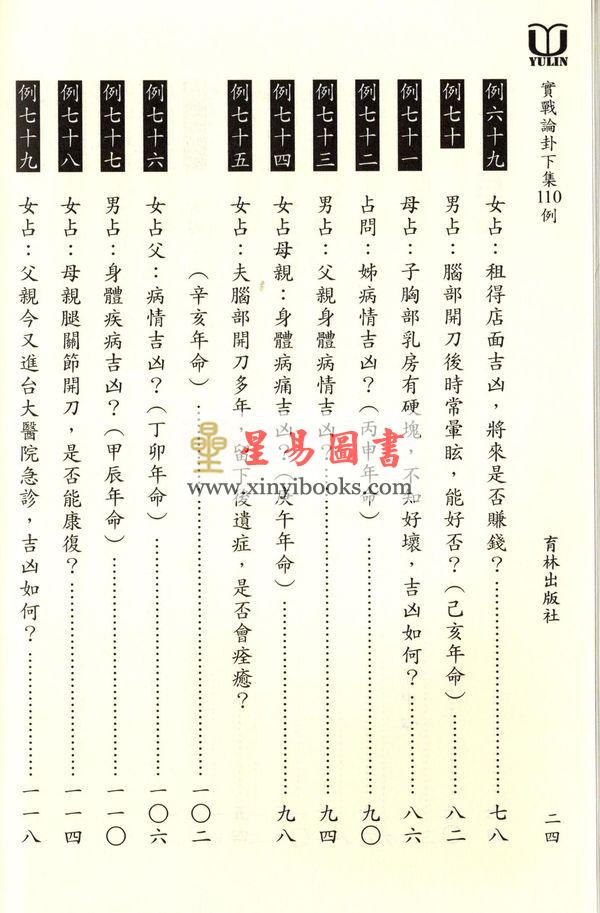 YULIN
實戰論卦下集110例
育林出版社
二四
例六十九 女占：租得店面吉凶，將來是否賺錢？⋯⋯七八
例七十 男占：腦部開刀後時常暈眩，能好否？（己亥年命）⋯⋯八二
例七十一 母占：子胸部乳房有硬塊，不知好壞，吉凶如何？⋯⋯八六
例七十二 占問：姊病情吉凶？（丙申年命）⋯⋯九〇
例七十三 男占：父親身體病情吉凶？⋯⋯九四
例七十四 女占母親：身體病痛吉凶？（庚午年命）⋯⋯九八
例七十五 女占：夫腦部開刀多年，留下後遺症，是否會痊癒？
（辛亥年命）⋯⋯一〇二
例七十六 女占父：病情吉凶？（丁卯年命）⋯⋯一〇六
例七十七 男占：身體疾病吉凶？（甲辰年命）⋯⋯一一〇
例七十八 女占：母親腿關節開刀，是否能康復？⋯⋯一一四
例七十九 女占：父親今又進台大醫院急診，吉凶如何？⋯⋯一一八
星易圖書
www.xinyibooks.com